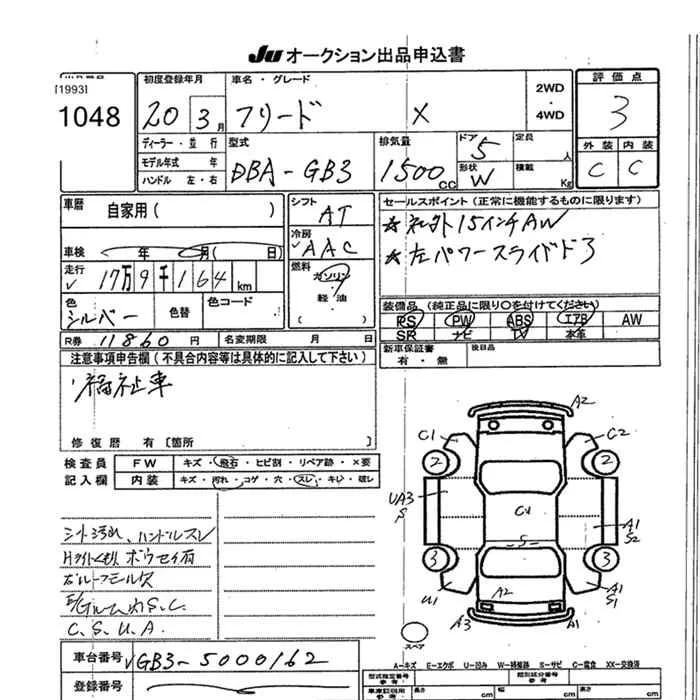 JU オークション出品申込書
[1993]
1048
初度登録年月
20 3月
車名・グレード
フリード X
2WD
・
4WD
評価点
3
ディーラー・並行
モデル年式 年
ハンドル 左・右
型式
DBA-GB3
排気量
1500cc
ドア
5
定員
人
形状
W
積載
Kg
外装 内装
C C
車歴 自家用( )
シフト
AT
セールスポイント(正常に機能するものに限ります)
★社外15インチAW
★左パワースライドドア
車検 年 月( 日)
冷房
AAC
走行
17万9千164km
燃料
ガソリン
軽油
( )
色
シルバー
色替
色コード
装備品(純正品に限り○を付けてください)
RS PW ABS エアB AW
SR ナビ TV 本革
R券 11860円
名変期限 月 日
新車保証書
有・無
後日品
注意事項申告欄(不具合内容等は具体的に記入して下さい)
福祉車
修復歴 有[箇所 ]
検査員
記入欄
FW キズ・飛石・ヒビ割・リペア跡・×要
内装 キズ・汚れ・コゲ・穴・スレ・キレ・破レ
シート汚れ、ハンドルスレ
C.S.U.A.
A2
C1
C2
2
2
UA3
S
CV
A1
S2
S
3
3
A2
U1
A1
S1
A3
A1
スペア
A-キズ E-エクボ U-凹み W-補修跡 S-サビ C-腐食 XX-交換済
車台番号 GB3-5000162
登録番号
型式指定番号
類別区分番号
長さ cm
幅 cm
高さ cm